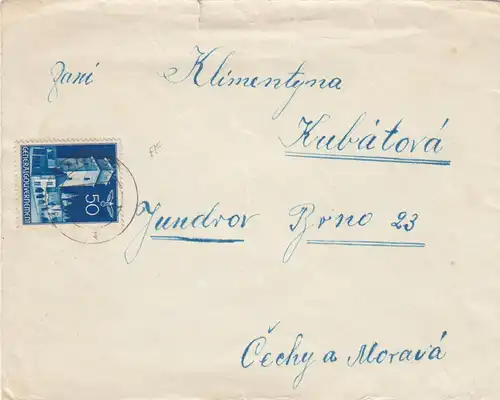 Paní Klimentyna
Kubátová
Jundrov Brno 23
Čechy a Morava
GENERALGOUVERNEMENT
50